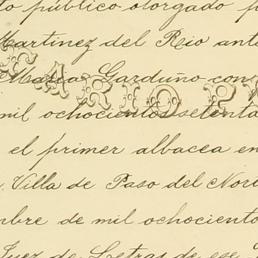 to público otorgado p
Martinez del Rio ant
Maria Garduño con
TARIO P
mil ochocientos setenta
el primer albacea en
Villa de Paso del Nor
mbre de mil ochociento
Juez de Letras de ese